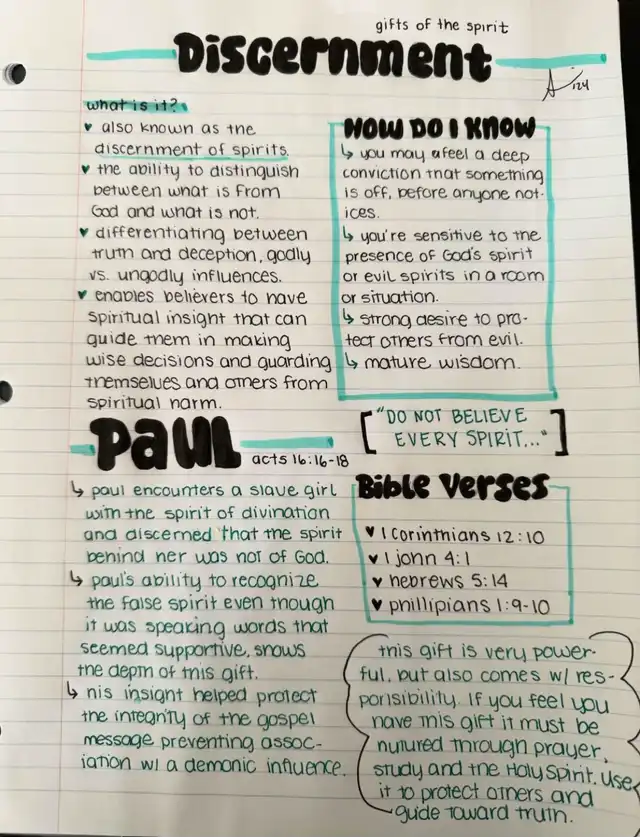 gifts of the spirit
Discernment
'24
what is it?
♥ also known as the
discernment of spirits.
♥ the ability to distinguish
between what is from
God and what is not.
♥ differentiating between
truth and deception, godly
vs. ungodly influences.
♥ enables believers to have
spiritual insight that can
guide them in making
wise decisions and guarding
themselves and others from
spiritual harm.
HOW DO I KNOW
↳ you may feel a deep
conviction that something
is off, before anyone not-
ices.
↳ you're sensitive to the
presence of God's spirit
or evil spirits in a room
or situation.
↳ strong desire to pro-
tect others from evil.
↳ mature wisdom.
["DO NOT BELIEVE
EVERY SPIRIT..."]
Paul
acts 16:16-18
↳ paul encounters a slave girl
with the spirit of divination
and discerned that the spirit
behind her was not of God.
↳ paul's ability to recognize
the false spirit even though
it was speaking words that
seemed supportive, shows
the depth of this gift.
↳ his insight helped protect
the integrity of the gospel
message preventing assoc-
iation w/ a demonic influence.
Bible Verses
♥ 1 Corinthians 12:10
♥ 1 john 4:1
♥ hebrews 5:14
♥ phillipians 1:9-10
this gift is very power-
ful, but also comes w/ res-
ponsibility. If you feel you
have this gift it must be
nutured through prayer,
study and the Holy Spirit. Use
it to protect others and
guide toward truth.